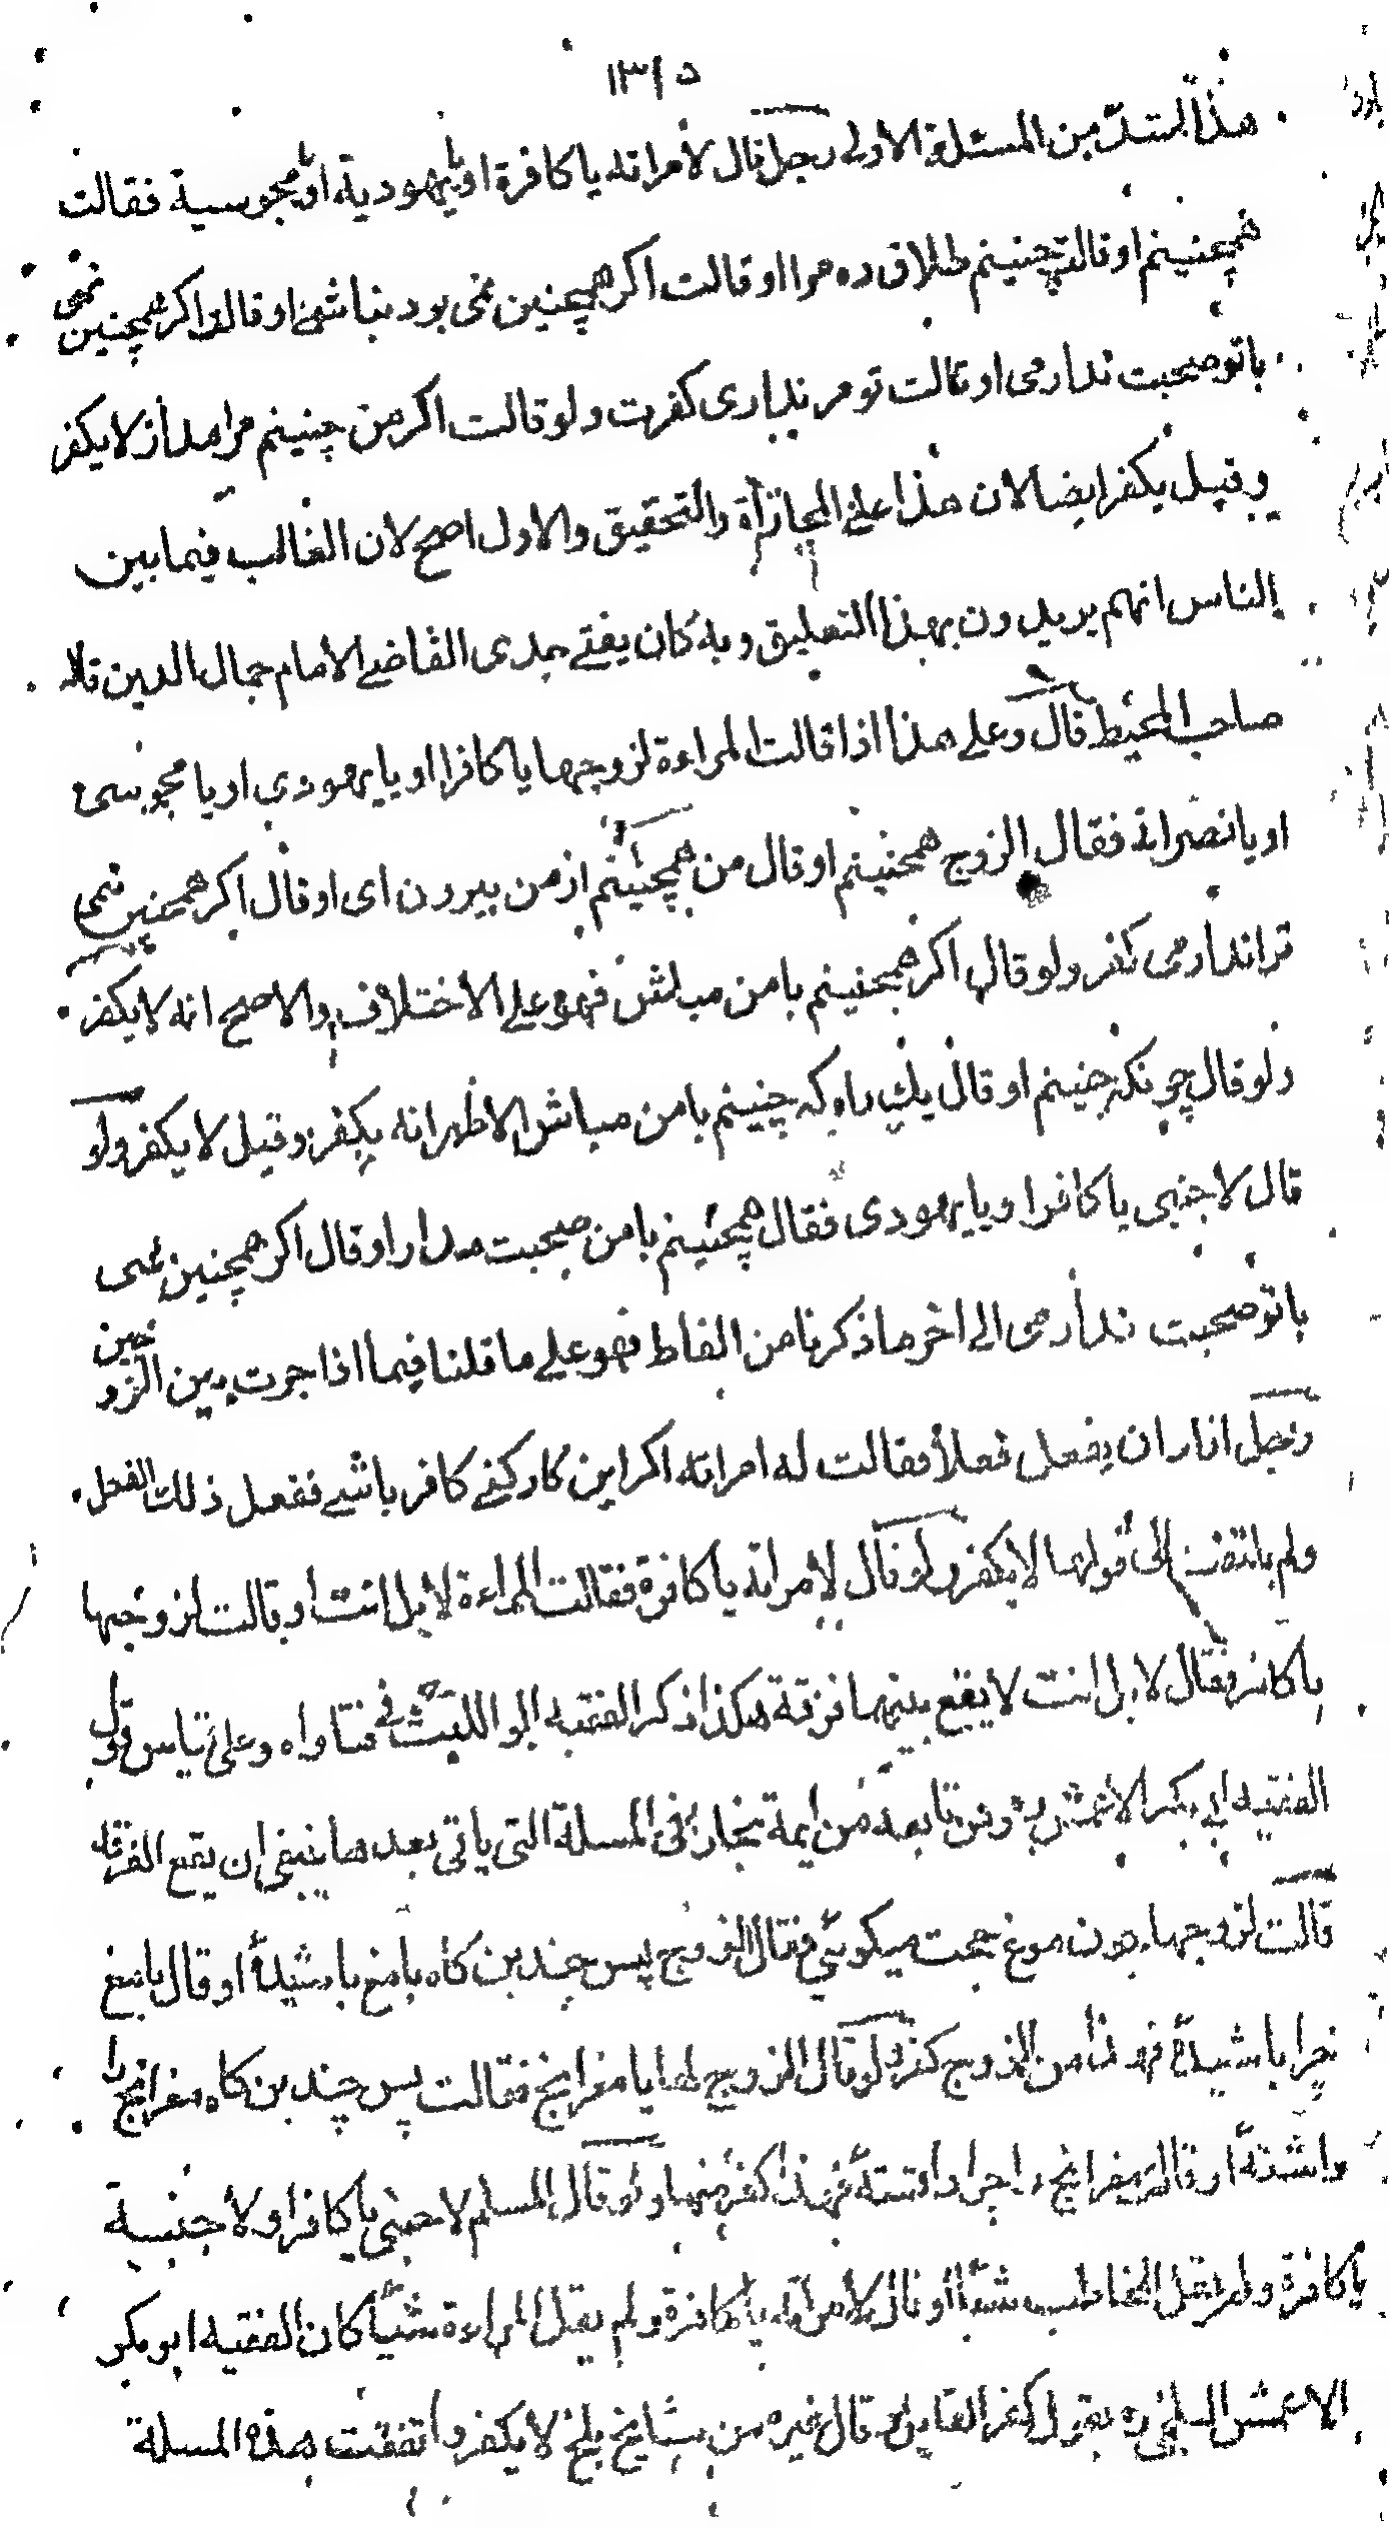 ١٣١٥
هذا اشد من المسئلة الاولى رجل قال لامراته يا كافرة او يا يهودية او يا مجوسية فقالت
همچنينم او قالت چنينم طلاق ده مرا او قالت اكر همچنين نمى بود نباشمى او قالت اكر همچنين نمى
باتو صحبت ندارمى او قالت تو مر نداری كفرت ولو قالت اكر من چنينم مرا مدار لا يكفر
وقيل يكفر ايضا لان هذا على المجازاة والتحقيق والاول اصح لان الغالب فيما بين
الناس انهم يريدون بهذا التعليق وبه كان يفتى جدى القاضى الامام جمال الدين قاله
صاحب المحيط قال وعلى هذا اذا قالت المراءة لزوجها يا كافر او يا يهودى او يا مجوسى
او يا نصرانى فقال الزوج همچنينم او قال من همچنينم از من بيرون اى او قال اكر همچنين نمى
ترا ندارمى كفر ولو قال اكر همچنينم بامن مباش فهو على الاختلاف والاصح انه لا يكفر
ولو قال چونكه چنينم او قال يك راه كه چنينم بامن مباش الاظهر انه يكفر وقيل لا يكفر ولو
قال لاجنبى يا كافر او يا يهودى فقال همچنينم بامن صحبت مدار او قال اكر همچنين نمى
باتو صحبت ندارمى الى اخر ما ذكرنا من الفاظ فهو على ما قلنا فيما اذا جرت بين الزوجين
رجل اذا اراد ان يفعل فعلا فقالت له امراته اكر اين كار كنى كافر باشى ففعل ذلك الفعل
ولم يلتفت الى قولها لا يكفر ولو قال لامراته يا كافرة فقالت المراءة لا بل انت او قالت لزوجها
يا كافر فقال لا بل انت لا يقع بينهما فرقة هكذا ذكر الفقيه ابو الليث فى فتاواه وعلى قياس قول
الفقيه ابى بكر الاعمش ره ومن تابعه من ايمة بخارى فى المسلة التى ياتى بعدها ينبغى ان يقع الفرقة
قالت لزوجها چون مغ ميكوئى فقال الزوج پس چندين كاه با مغ باشيدۀ او قال با مغ
چرا باشيدۀ فهذا من الزوج كفر ولو قال الزوج لها يا فقالت پس چندين كاه را
داشتۀ او قالت را چرا داشتۀ فهذا كفر منها ولو قال المسلم لاجنبى يا كافر او لاجنبية
يا كافرة ولم يقل المخاطب شيئا او قال لامراته يا كافرة ولم يقل المراءة شيئا كان الفقيه ابو بكر
الاعمش البلخى ره يقول كفر القايل وقال غيره من مشايخ بلخ لا يكفر واتفقت هذه المسلة